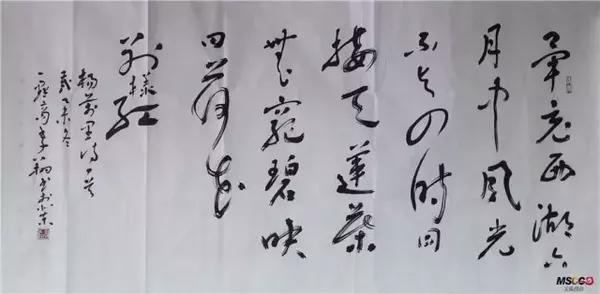 畢竟西湖六
月中風光
不與四時同
接天蓮葉
無窮碧映
日荷花
別樣紅
楊萬里詩一首
乙未冬